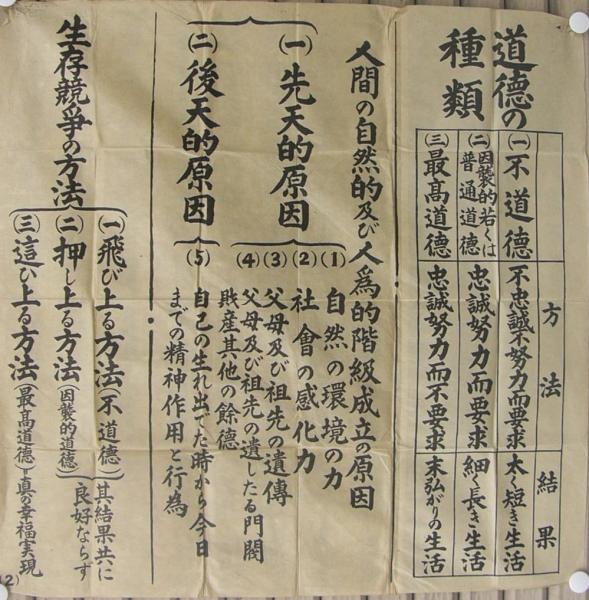 道德の
種類
方法
結果
(一)不道德
不忠誠不努力而要求
太く短き生活
(二)因襲的若くは
普通道德
忠誠努力而要求
細く長き生活
(三)最高道德
忠誠努力而不要求
末弘がりの生活
人間の自然的及び人為的階級成立の原因
(一)先天的原因
(1)自然の環境の力
(2)社會の感化力
(3)父母及び祖先の遺傳
(4)父母及び祖先の遺したる門閥
財産其他の餘德
(二)後天的原因
(5)自己の生れ出でた時から今日
までの精神作用と行為
生存競爭の方法
(一)飛び上る方法(不道德)
(二)押し上る方法(因襲的道德)
其結果共に
良好ならず
(三)這ひ上る方法(最高道德)=真の幸福実現
2)